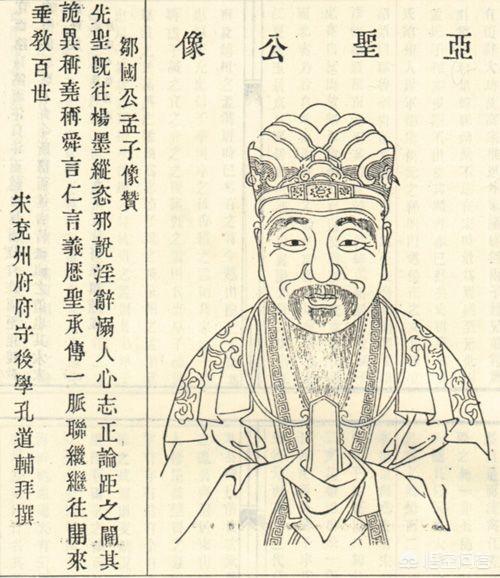 亞聖公像
鄒國公孟子像贊
先聖旣往楊墨縱恣邪說淫辭溺人心志正論距之闢其
詭異稱堯稱舜言仁言義歷聖承傳一脈聯繼繼往開來
垂教百世
宋兗州府府守後學孔道輔拜撰
悟空问答